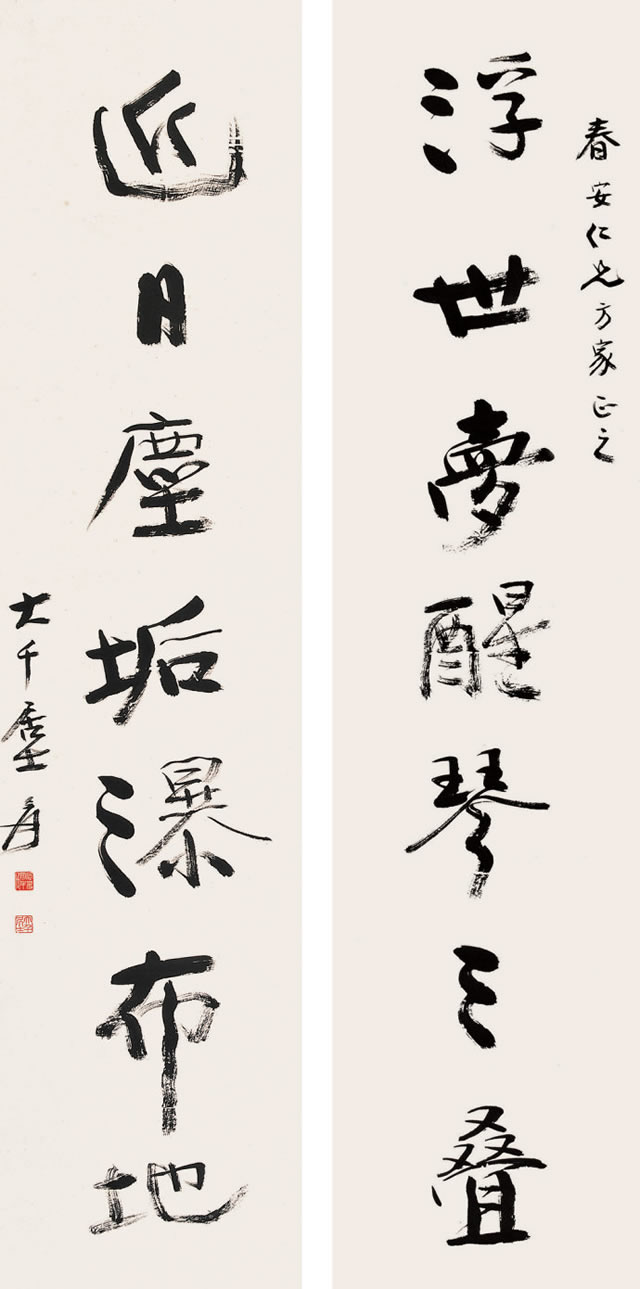 春安仁兄方家正之
浮世夢醒琴三叠
近日塵垢瀑布地
大千居士爰